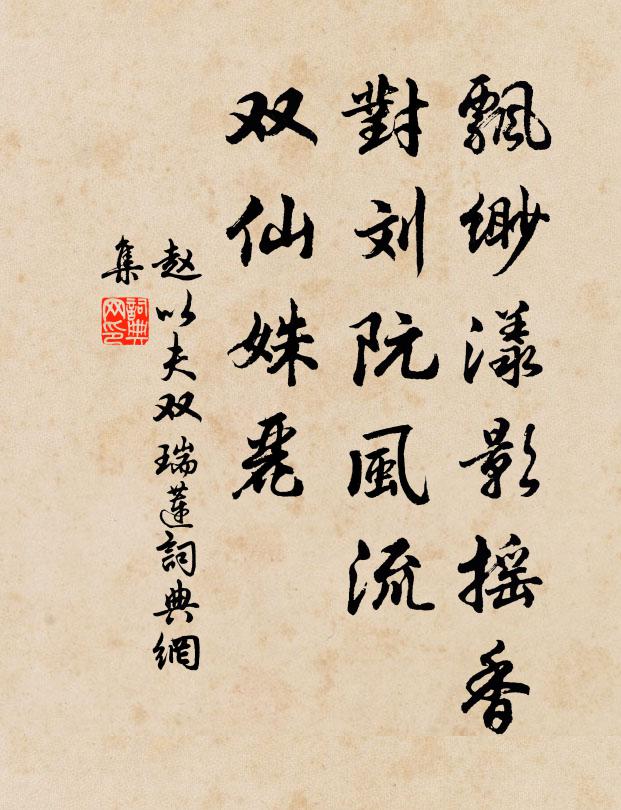 飄缈漾影摇香
對刘阮風流
双仙姝麗
赵以夫双瑞莲詞典網
集
詞典
网印